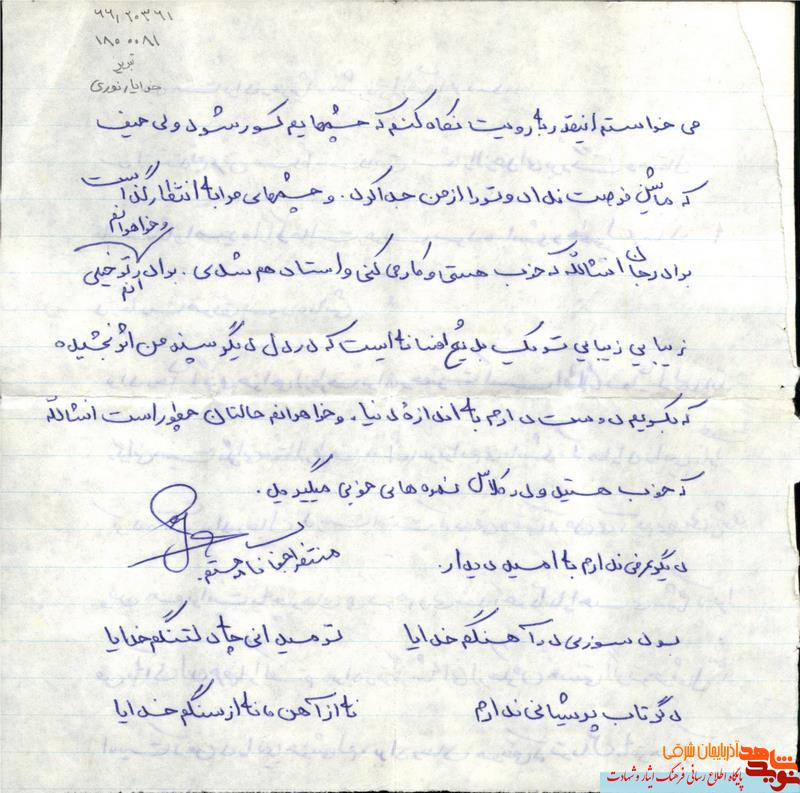 ۶۶/۲۰۳۶۱
۱۸۵۰۰۸۱
تبریز
خدایار نوری
می خواستم اینقدر به رویت نگاه کنم که چشمهایم کور شود ولی حیف
که ماشین فرصت نداد و تو را از من جدا کرد. و چشمهای مرا به انتظار گذاشت
و خواهرانم
برادر جان انشاالله که خوب هستی و کار می کنی و استاد هم شدی. برادرم تو خیلی
زیبایی زیبایی تو یک افسانه است که در دل دیگر سپند من اثر بخشیده
که بگویم دوستت دارم به اندازهٔ دنیا. و خواهرانم حالتان چطور است انشاالله
که خوب هستید و در کلاس نمره های خوبی میگیرید.
دیگر عرضی ندارم به امید دیدار. منتظر نامه هستم.
بود سوزی در آهنگم خدایا تو میدانی چه دلتنگم خدایا
دگر تاب پریشانی ندارم نه از آهن نه از سنگم خدایا
نوید شاهد آذربایجان شرقی
پایگاه اطلاع رسانی فرهنگ ایثار و شهادت